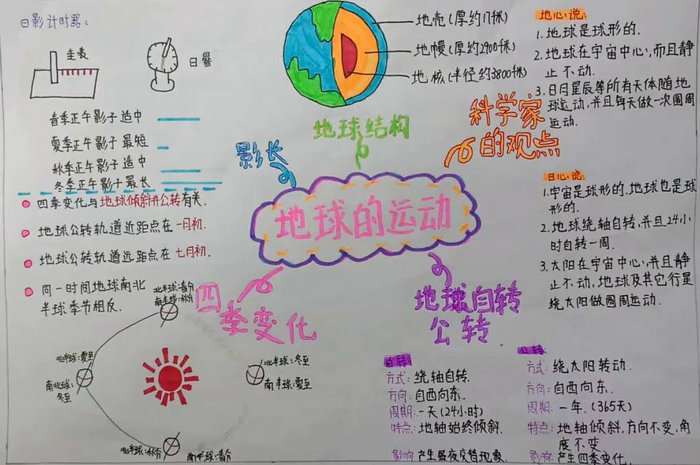 日影计时器:
圭表
日晷
春季正午影子适中
夏季正午影子最短
秋季正午影子适中
冬季正午影子最长
四季变化与地球倾斜并公转有关.
地球公转轨道近距点在一月初.
地球公转轨道远距点在七月初.
同一时间地球南北
半球季节相反.
地壳(厚约17km)
地幔(厚约2900km)
地核(半径约3800km)
地球结构
影长
科学家
的观点
地球的运动
四
季变化
地球自转
公转
地心说:
1.地球是球形的.
2.地球在宇宙中心,而且静
止不动.
3.日月星辰等所有天体随地
球运动,并且每天做一次圆周
运动.
日心说:
1.宇宙是球形的.地球也是球
形的.
2.地球绕轴自转,并且24小
时自转一周.
3.太阳在宇宙中心,并且静
止不动,地球及其它行星
绕太阳做圆周运动.
北半球:春分
南半球:秋分
北半球:夏至
南半球:
冬至
北半球:冬至
南半球:夏至
北半球:秋分
南半球:春分
自转
方式:绕轴自转.
方向:自西向东.
周期:一天(24小时)
特点:地轴始终倾斜.
影响:产生昼夜交替现象.
公转
方式:绕太阳转动.
方向:自西向东.
周期:一年.(365天)
特点:地轴倾斜,方向不变,角
度不变.
影响:产生四季变化.